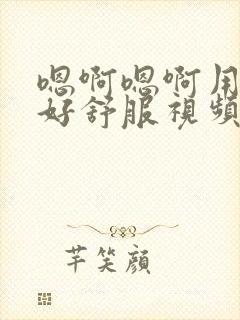 嗯啊嗯啊用
好舒服視頻
芊笑顏